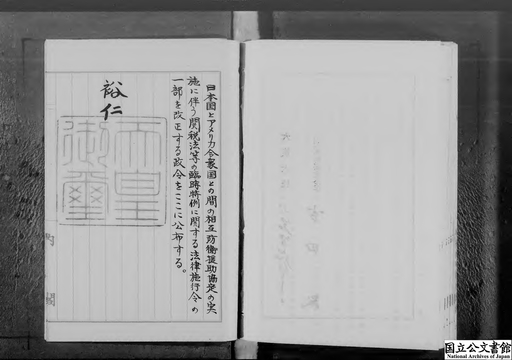 日本国とアメリカ合衆国との間の相互防衛援助協定の実
施に伴う関税法等の臨時特例に関する法律施行令の
一部を改正する政令をここに公布する。
裕仁
天皇
御璽
内閣
国立公文書館
National Archives of Japan